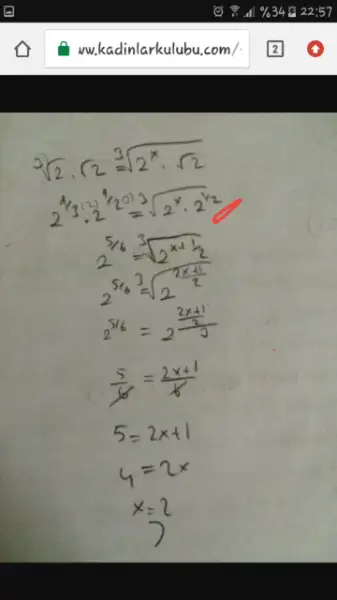 %34 22:57
ww.kadinlarkulubu.com/ 2
³√2 . √2 = ³√(2ˣ . √2)
2^1/3(2) . 2^1/2(3) = ³√(2ˣ . 2^1/2)
2^5/6 = ³√(2^(x+1/2))
2^5/6 = ³√(2^((2x+1)/2))
2^5/6 = 2^(((2x+1)/2)/3)
5/6 = (2x+1)/6
5 = 2x+1
4 = 2x
x = 2